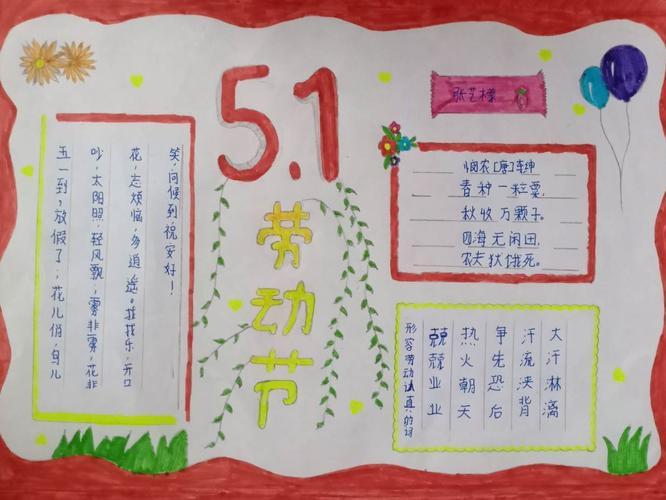 5.1
劳动节
五一到，放假了；花儿俏，鸟儿
吵，太阳照，轻风飘；雾非雾，花非
花，忘烦恼，勿逍遥。找找乐，开口
笑，问候到，祝安好！
张艺檬
悯农[唐]李绅
春种一粒粟，
秋收万颗子。
四海无闲田，
农夫犹饿死。
形容劳动认真的词
兢兢业业
热火朝天
争先恐后
汗流浃背
大汗淋漓